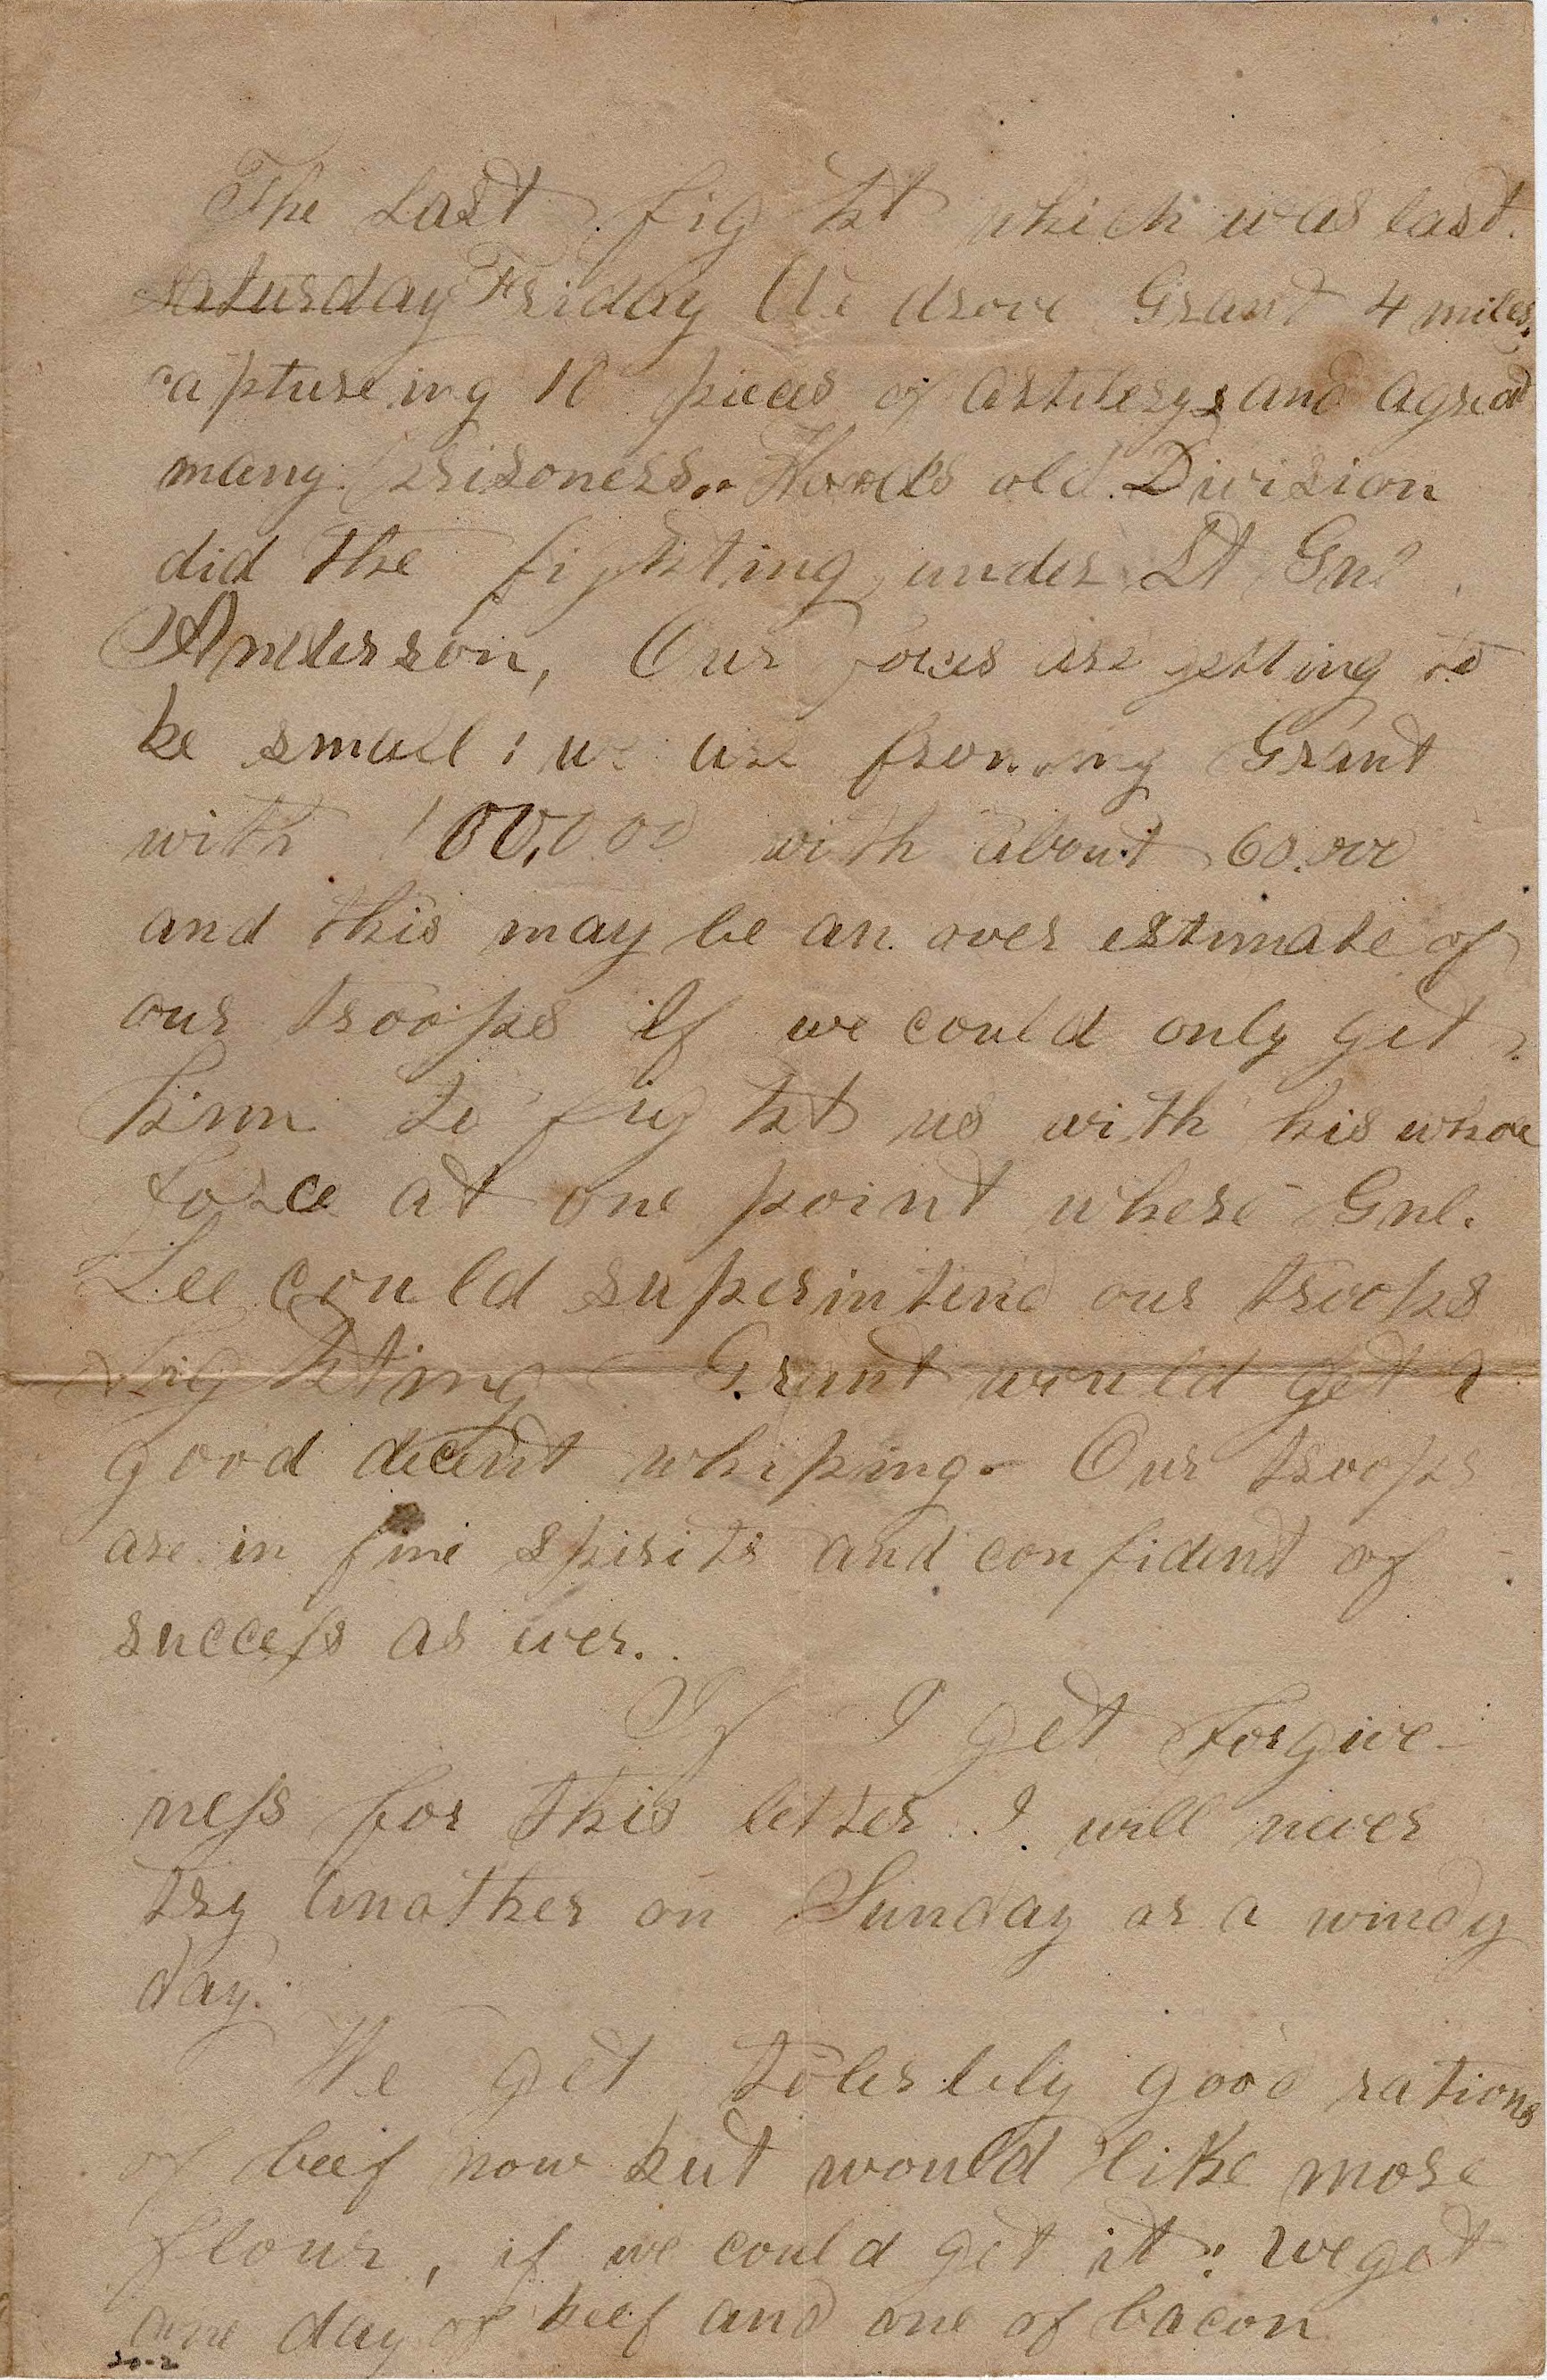 The Last fight which was last.
Saturday Friday We drove Grant 4 miles,
captureing 10 pieces of artilerys and agreat
many prisoners. Hoods old Division
did the fighting under Lt Gnl
Anderson, Our forces are getting to
be small; we are fronting Grant
with 100,000 with about 60.000
and this may be an over estimate of
our troops if we could only get
him to fight us with his whole
force at one point where Gnl.
Lee could superintend our troops
fighting Grant would get a
good decent whiping. Our troops
are in fine spirits and confident of
success as ever.
If I get forgive-
ness for this letter I will never
try another on Sunday or a windy
day.
We get tolerbly good rations
of beef now but would like more
flour, if we could get it: we get
one day of beef and one of bacon
20-2